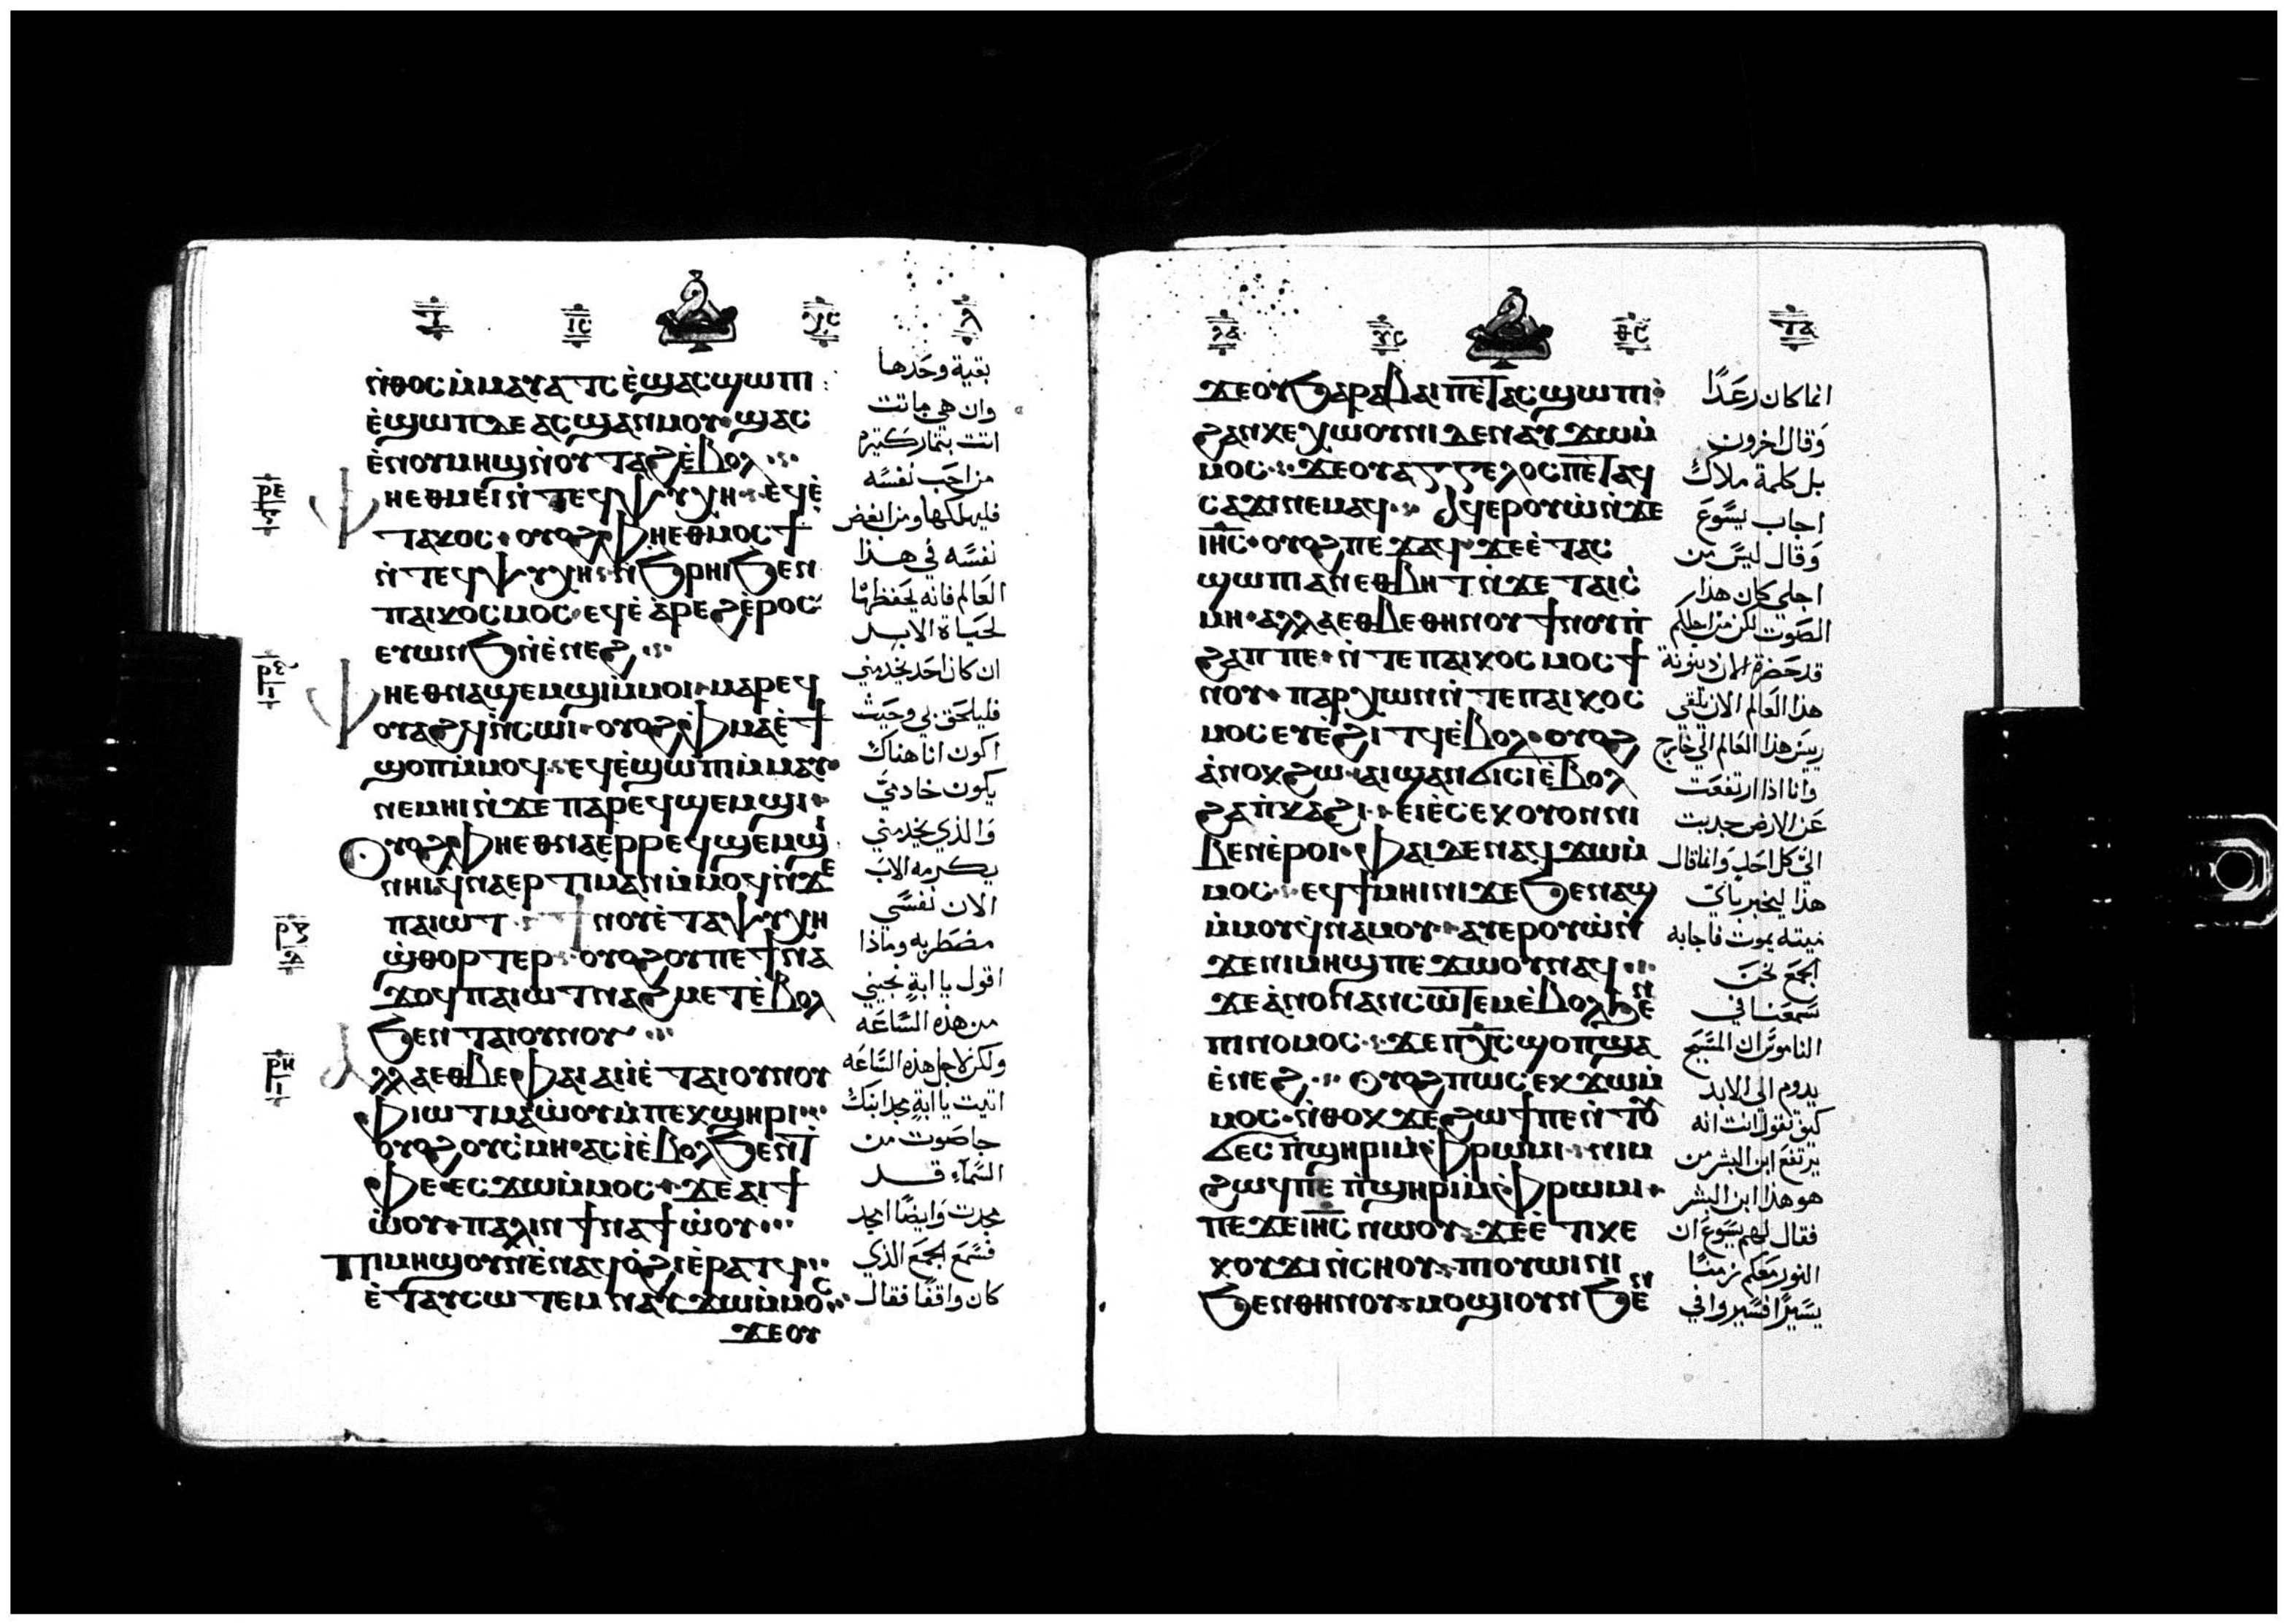 ⲓⲥ ⲭⲥ
ⲛ̀ⲑⲟⲥ ⲙ̀ⲙⲁⲩⲁⲧⲥ ⲉ̀ϣⲁⲥϣⲱⲡⲓ :
ⲉ̀ϣⲱⲡ ⲇⲉ ⲁⲥϣⲁⲛⲙⲟⲩ · ϣⲁⲥ
ⲉ̀ⲛⲟⲩⲙⲏϣ ⲛ̀ⲟⲩⲧⲁϩ ⲉ̀ⲃⲟⲗ ⁘
ⲣⲉ
ⲫⲏ ⲉⲑⲙⲉⲓ ⲛ̀ⲧⲉϥⲯⲩⲭⲏ · ⲉϥⲉ̀
ⲧⲁⲕⲟⲥ · ⲟⲩⲟϩ ⲫⲏ ⲉⲑⲙⲟⲥϯ
ⲛ̀ⲧⲉϥⲯⲩⲭⲏ · ⲛ̀ϧⲣⲏⲓ ϧⲉⲛ
ⲡⲁⲓⲕⲟⲥⲙⲟⲥ · ⲉϥⲉ̀ⲁ̀ⲣⲉϩ ⲉ̀ⲣⲟⲥ
ⲉⲩⲱⲛϧ ⲛ̀ⲉⲛⲉϩ ⁘
ⲣⲋ
ⲫⲏ ⲉⲑⲛⲁϣⲉⲙϣⲓ ⲙ̀ⲙⲟⲓ · ⲙⲁⲣⲉϥ
ⲟⲩⲁϩϥ ⲛ̀ⲥⲱⲓ · ⲟⲩⲟϩ ⲫⲙⲁ ⲉ̀ϯ
ϣⲟⲡ ⲙ̀ⲙⲟϥ · ⲉϥⲉ̀ϣⲱⲡⲓ ⲙ̀ⲙⲁⲩ
ⲛⲉⲙⲏⲓ ⲛ̀ϫⲉ ⲡⲁⲣⲉϥϣⲉⲙϣⲓ ·
Ⲟⲩⲟϩ ⲫⲏ ⲉⲑⲛⲁⲉⲣⲣⲉϥϣⲉⲙϣⲓ
ⲛⲏⲓ ϥⲛⲁⲉⲣⲧⲓⲙⲁⲛ ⲙ̀ⲙⲟϥ ⲛ̀ϫⲉ
ⲡⲁⲓⲱⲧ · ϯⲛⲟⲩ ⲉ̀ ⲧⲁⲯⲩⲭⲏ
ⲣⲍ
ϣ̀ⲑⲟⲣⲧⲉⲣ · ⲟⲩⲟϩ ⲟⲩ ⲡⲉϯⲛⲁ
ϫⲟϥ ⲡⲁⲓⲱⲧ ⲛⲁϩⲙⲉⲧ ⲉ̀ⲃⲟⲗ
ϧⲉⲛ ⲧⲁⲓⲟⲩⲛⲟⲩ ⁘
ⲣⲏ
ⲁⲗⲗⲁ ⲉⲑⲃⲉ ⲫⲁⲓ ⲁⲓⲓ̀ ⲉ̀ⲧⲁⲓⲟⲩⲛⲟⲩ
ⲫⲓⲱⲧ ⲙⲁⲱ̀ⲟⲩ ⲙ̀ⲡⲉⲕϣⲏⲣⲓ ⁘
ⲟⲩⲟϩ ⲟⲩⲥ̀ⲙⲏ · ⲁⲥⲓ̀ ⲉ̀ⲃⲟⲗ ϧⲉⲛ ⲧ
ⲫⲉ · ⲉⲥϫⲱ ⲙ̀ⲙⲟⲥ · ϫⲉ ⲁⲓϯ
ⲱ̀ⲟⲩ · ⲡⲁⲗⲓⲛ ϯⲛⲁϯⲱ̀ⲟⲩ ⁘
Ⲡⲓⲙⲏϣ ⲟⲩⲛ ⲉ̀ⲛⲁϥⲟ̀ϩⲓ ⲉ̀ⲣⲁⲧϥ
ⲉ̀ⲧⲁⲩⲥⲱⲧⲉⲙ ⲛⲁⲩϫⲱ ⲙ̀ⲙⲟⲥ
ϫⲉ ⲟⲩ
بقية وحدها
وان هي ماتت
اتت بثمار كتيره
من احب نفسه
فليهلكها ومن ابغض
نفسه في هذا
العالم فانه يحفظها
لحياة الابد
ان كان احد يخدمني
فليلحق بي وحيث
اكون انا هناك
يكون خادمي
والذي يخدمني
يكرمه الاب
الان نفسي
مضطربه وماذا
اقول يا ابة نجيني
من هذه الساعه
ولكن لاجل هذه الساعه
اتيت يا ابة مجد ابنك
جا صوت من
السماء قد
مجدت وايضا امجد
فسمع الجمع الذي
كان واقفا فقال
ⲩⲥ ⲑⲥ
ϫⲉ ⲟⲩϧⲁⲣⲁⲃⲁⲓ ⲡⲉⲧⲁⲥϣⲱⲡⲓ ·
ϩⲁⲛⲕⲉⲭⲱⲟⲩⲛⲓ ⲇⲉ ⲛⲁⲩϫⲱ ⲙ̀
ⲙⲟⲥ · ϫⲉ ⲟⲩⲁⲅⲅⲉⲗⲟⲥ ⲡⲉⲧⲁϥ
ⲥⲁϫⲓ ⲛⲉⲙⲁϥ · Ⲁϥⲉⲣⲟⲩⲱ̀ ⲛ̀ϫⲉ
ⲓⲏⲥ · ⲟⲩⲟϩ ⲡⲉϫⲁϥ · ϫⲉ ⲉ̀ⲧⲁⲥ
ϣⲱⲡⲓ ⲁⲛ ⲉⲑⲃⲏⲧ ⲛ̀ϫⲉ ⲧⲁⲓⲥ̀
ⲙⲏ · ⲁⲗⲗⲁ ⲉⲑⲃⲉ ⲑⲏⲛⲟⲩ ϯⲛⲟⲩ ⲡ̀
ϩⲁⲡ ⲡⲉ · ⲛ̀ⲧⲉ ⲡⲁⲓⲕⲟⲥⲙⲟⲥ ϯ
ⲛⲟⲩ · ⲡⲁⲣⲭⲱⲛ ⲛ̀ⲧⲉ ⲡⲁⲓⲕⲟⲥ
ⲙⲟⲥ ⲉⲩⲉ̀ϩⲓⲧϥ ⲉ̀ⲃⲟⲗ · ⲟⲩⲟϩ
ⲁ̀ⲛⲟⲕ ϩⲱ · ⲁⲓϣⲁⲛϭⲓⲥⲓ ⲉ̀ⲃⲟⲗ
ϩⲁ ⲡ̀ⲕⲁϩⲓ · ⲉⲓⲉ̀ⲥⲉⲕ ⲟⲩⲟⲛ ⲛⲓ
ⲃⲉⲛ ⲉ̀ⲣⲟⲓ · ⲫⲁⲓ ⲇⲉ ⲛⲁϥϫⲱ ⲙ̀
ⲙⲟⲥ · ⲉϥϯⲙⲏⲓⲛⲓ ϫⲉ ϧⲉⲛ ⲁϣ
ⲙ̀ⲙⲟⲩ ϥⲛⲁⲙⲟⲩ · ⲁⲩⲉⲣⲟⲩⲱ̀ ⲛ̀
ϫⲉ ⲛⲓⲙⲏϣ ⲡⲉϫⲱⲟⲩ ⲛⲁϥ ⁘
ϫⲉ ⲁ̀ⲛⲟⲛ ⲁⲛⲥⲱⲧⲉⲙ ⲉ̀ⲃⲟⲗ ϧⲉⲛ
ⲡⲓⲛⲟⲙⲟⲥ · ϫⲉ ⲡⲭⲥ ϣⲟⲡ ϣⲁ
ⲉ̀ⲛⲉϩ · Ⲟⲩⲟϩ ⲡⲱⲥ ⲉⲕϫⲱ ⲙ̀
ⲙⲟⲥ · ⲛ̀ⲑⲟⲕ ϫⲉ ϩⲱϯ ⲡⲉ ⲛ̀ⲧⲟⲩ
ϭⲉⲥ ⲡ̀ϣⲏⲣⲓ ⲙ̀ⲫⲣⲱⲙⲓ · ⲛⲓⲙ
ϩⲱϥ ⲡⲉ ⲡ̀ϣⲏⲣⲓ ⲙ̀ⲫⲣⲱⲙⲓ ·
ⲡⲉϫⲉ ⲓⲏⲥ ⲛⲱⲟⲩ · ϫⲉ ⲉ̀ⲧⲓ ⲕⲉ
ⲕⲟⲩϫⲓ ⲛ̀ⲥⲏⲟⲩ · ⲡⲓⲟⲩⲱⲓⲛⲓ
ϧⲉⲛ ⲑⲏⲛⲟⲩ · ⲙⲟϣⲓ ⲟⲩⲛ ϧⲉⲛ
انما كان رعدا
وقال اخرون
بل كلمة ملاك
اجاب يسوع
وقال ليس من
اجلي كان هذا
الصوت لكن من اجلكم
قد حضرة الان دينونة
هذا العالم الان يلقي
رييس هذا العالم الي خارج
وانا اذا ارتفعت
عن الارض جدبت
الي كل احد وانما قال
هذا ليخبر باي
ميته يموت فاجابه
الجمع نحن
سمعنا في
الناموس ان المسيح
يدوم الي الابد
كيف تقول انت انه
يرتفع ابن البشر من
هو هذا ابن البشر
فقال لهم يسوع ان
النور معكم زمنا
يسيرا فسيروا في